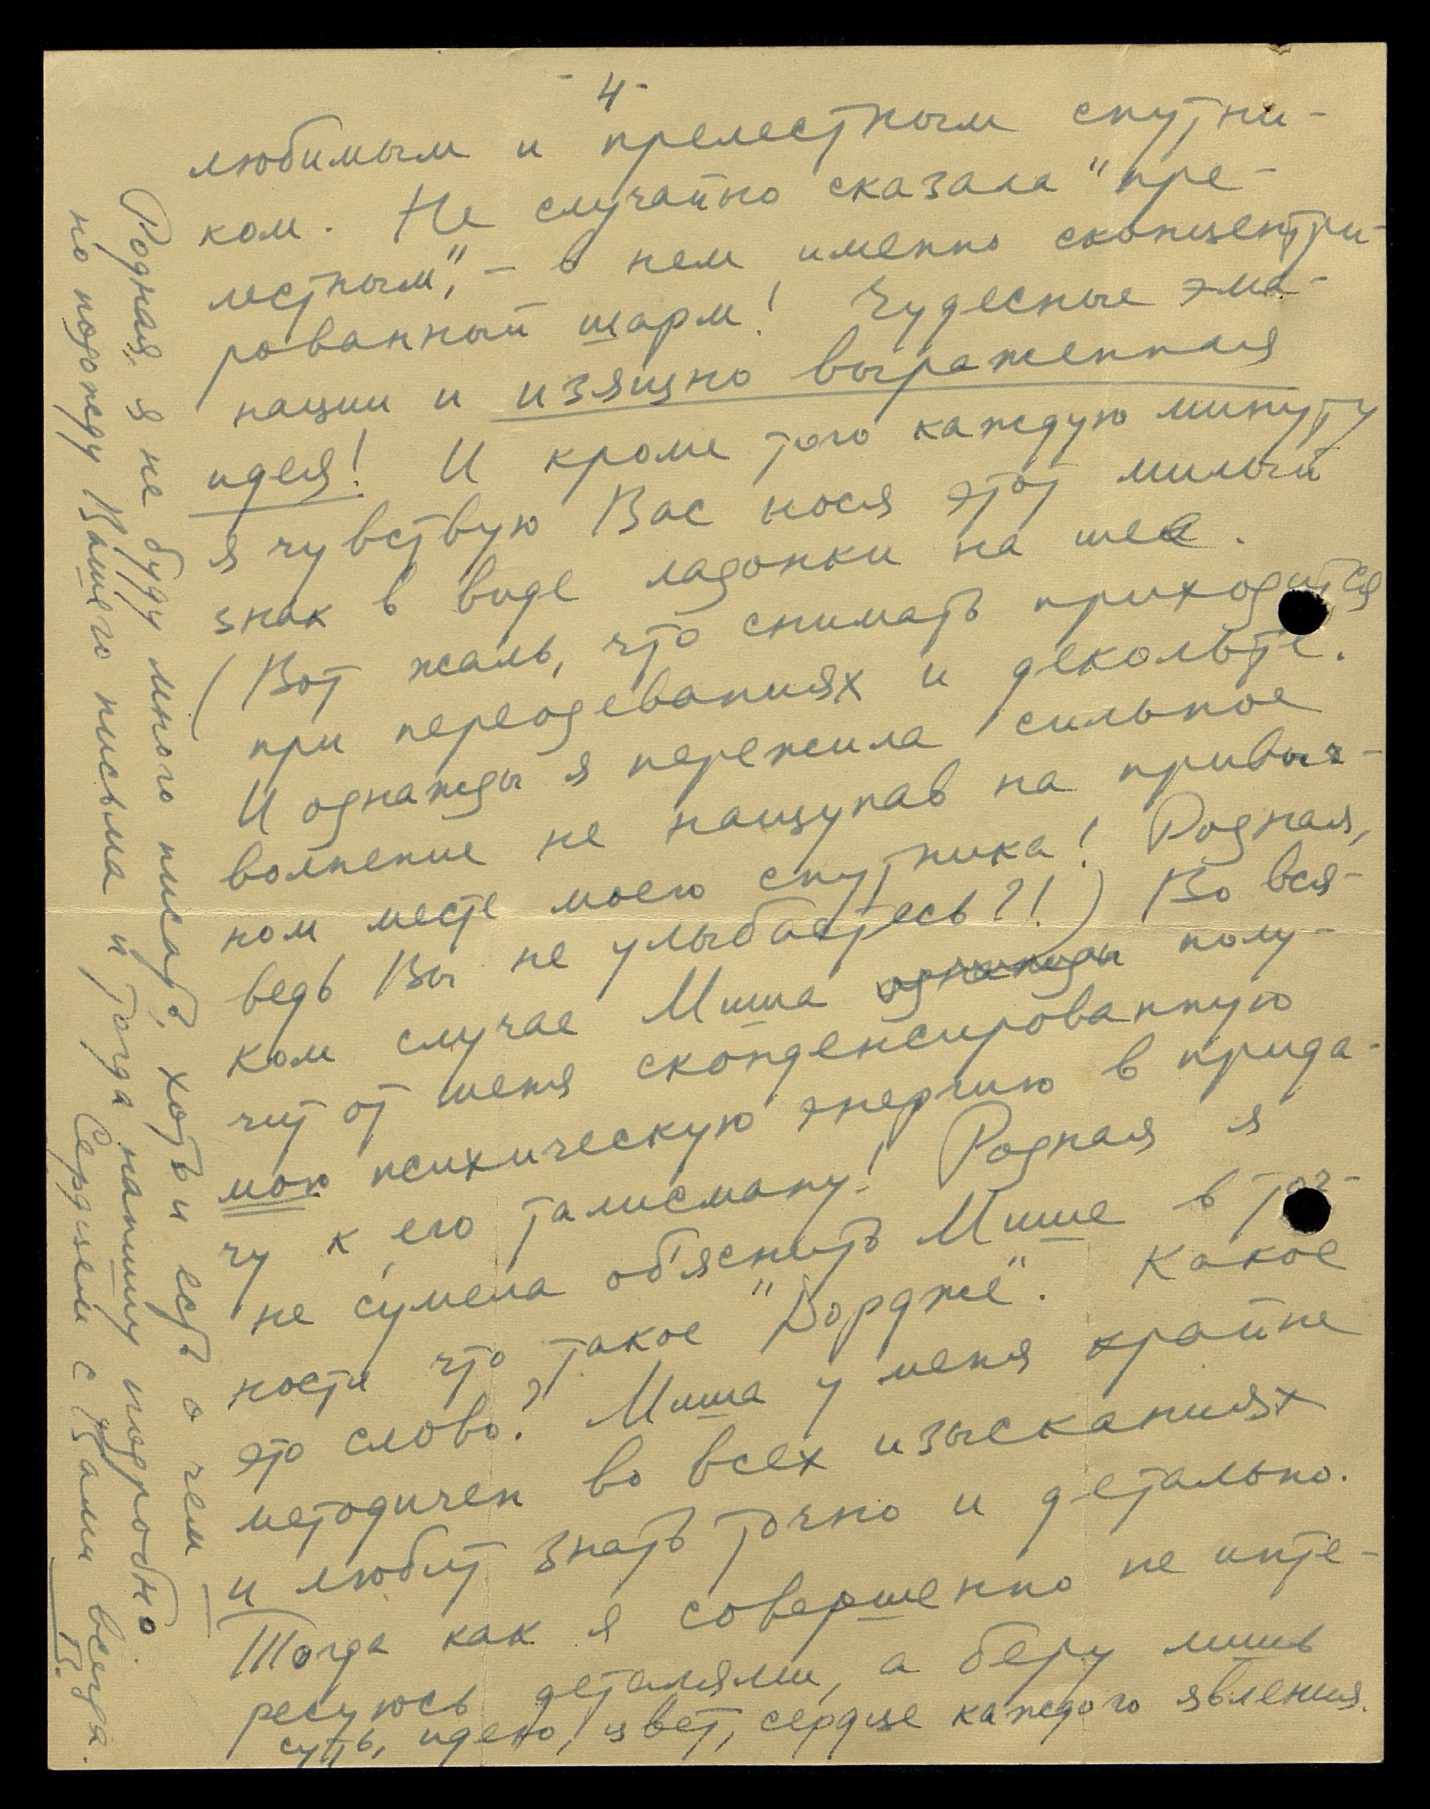 - 4 -
любимым и прелестным спутни-
ком. Не случайно сказала "пре-
лестным", - в нем именно сконцентри-
рованный шарм! Чудесные эма-
нации и изящно выраженная
идея! И кроме того каждую минуту
я чувствую Вас нося этот милый
знак в виде ладонки на шее.
(Вот жаль, что снимать приходится
при переодеваниях и декольте.
И однажды я пережила сильное
волнение не нащупав на привыч-
ном месте моего спутника! Родная,
ведь Вы не улыбаетесь?!) Во вся-
ком случае Миша однажды полу-
чит от меня сконденсированную
мою психическую энергию в прида-
чу к его талисману! Родная я
не сумела об'яснить Мише в точ-
ности что такое "Дордже". Какое
это слово? Миша у меня крайне
методичен во всех изысканиях
и любит знать точно и детально.
Тогда как я совершенно не инте-
ресуюсь деталями, а беру лишь
суть, идею, цвет, сердце каждого явления.
Родная, я не буду много писать, хоть и есть о чем
но подожду Вашего письма и тогда напишу подробно.
Сердцем с Вами всегда.